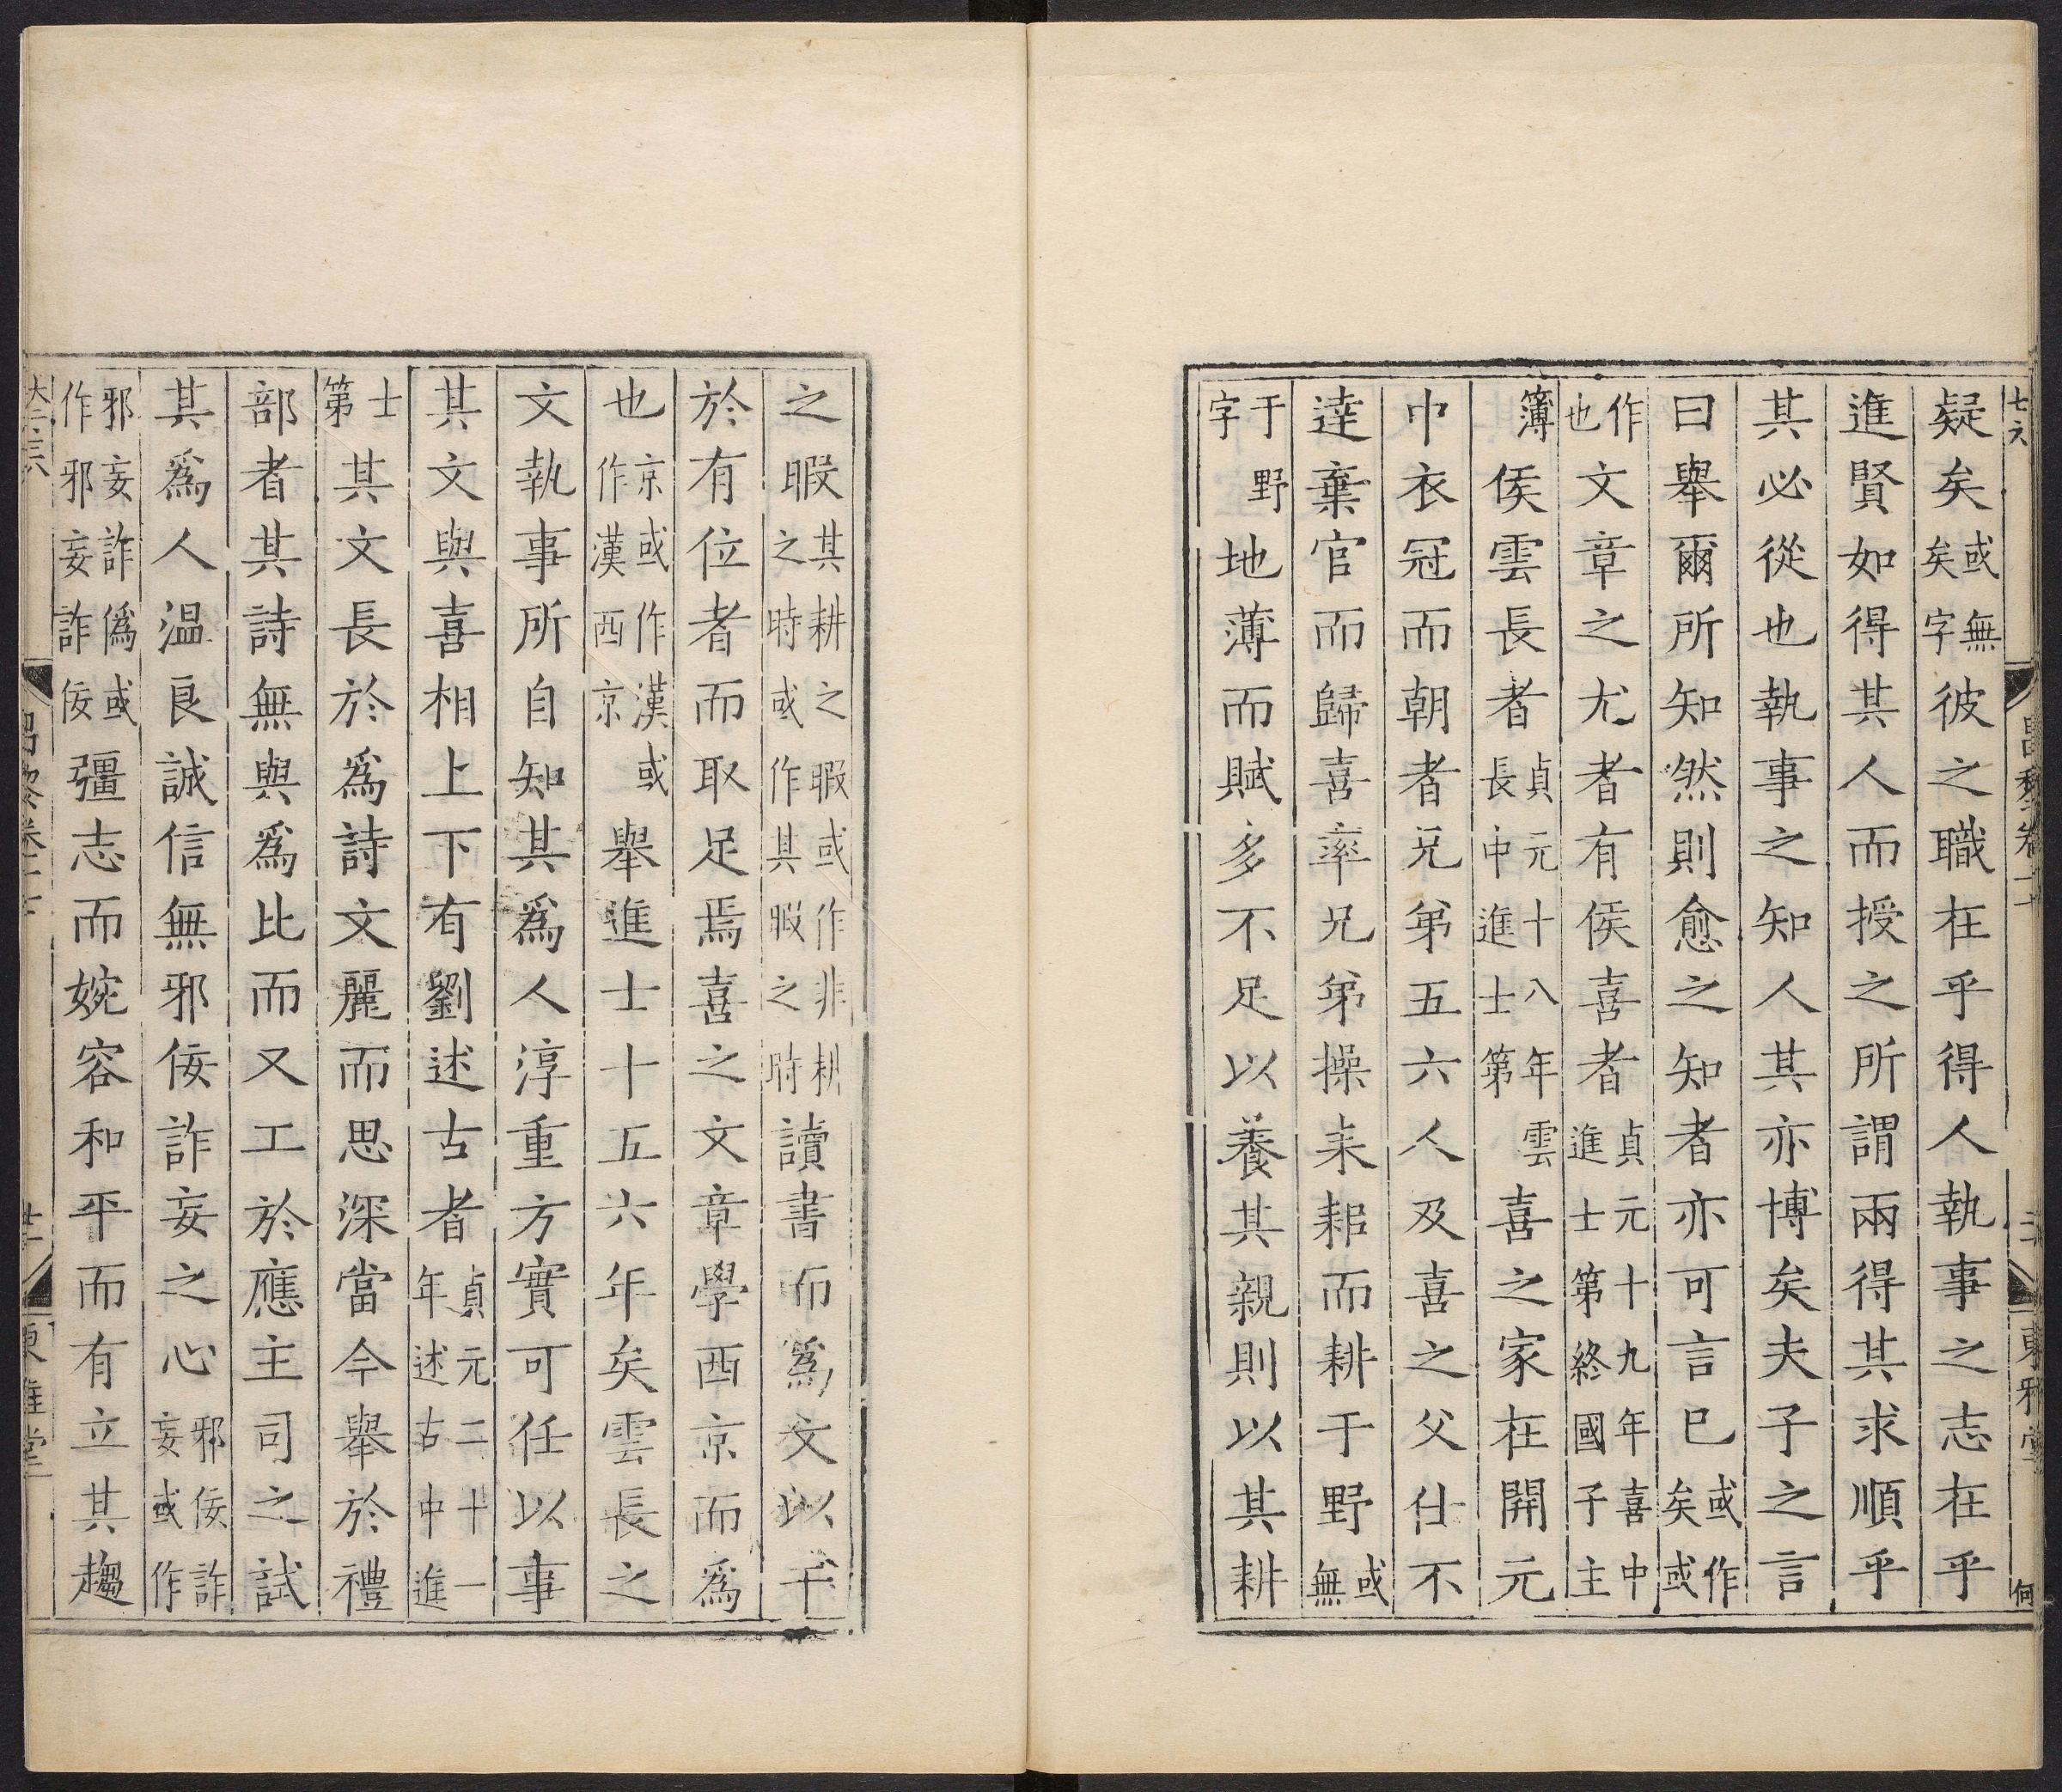 疑矣或無矣字彼之職在乎得人執事之志在乎
進賢如得其人而授之所謂兩得其求順乎
其必從也執事之知人其亦博矣夫子之言
曰舉爾所知然則愈之知者亦可言已或作矣或
作也文章之尤者有侯喜者貞元十九年喜中進士第終國子主
簿侯雲長者貞元十八年雲長中進士第喜之家在開元
中衣冠而朝者兄弟五六人及喜之父仕不
達棄官而歸喜率兄弟操耒耜而耕于野或無
于野字地薄而賦多不足以養其親則以其耕
之暇其耕之暇或作非耕之時或作其暇之時讀書而為文以干
於有位者而取足焉喜之文章學西京而為
也京或作漢或作漢西京舉進士十五六年矣雲長之
文執事所自知其為人淳重方實可任以事
其文與喜相上下有劉述古者貞元二十一年述古中進
士第其文長於為詩文麗而思深當今舉於禮
部者其詩無與為比而又工於應主司之試
其為人溫良誠信無邪佞詐妄之心邪佞詐妄或作
邪妄詐偽或作邪妄詐佞彊志而婉容和平而有立其趨
東雅堂